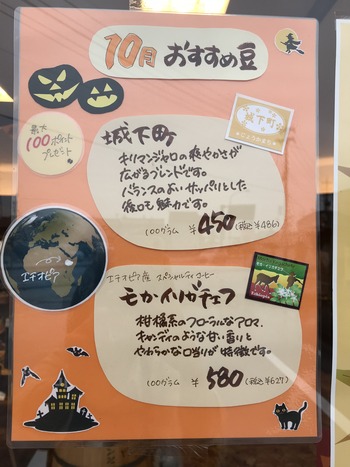 10月 おすすめ豆
最大
100ポイント
プレゼント
城下町
城下町
キリマンジャロの爽やかさが
広がるブレンドです。
バランスのよい サッパリとした
後口も魅力です。
100グラム ¥450(税込¥486)
エチオピア
エチオピア産 スペシャルティコーヒー
モカ・イリガチェフ
柑橘系のフローラルなアロマ、
キャンディのような甘い香りと
やわらかな口当りが特徴です。
100グラム ¥580(税込¥627)